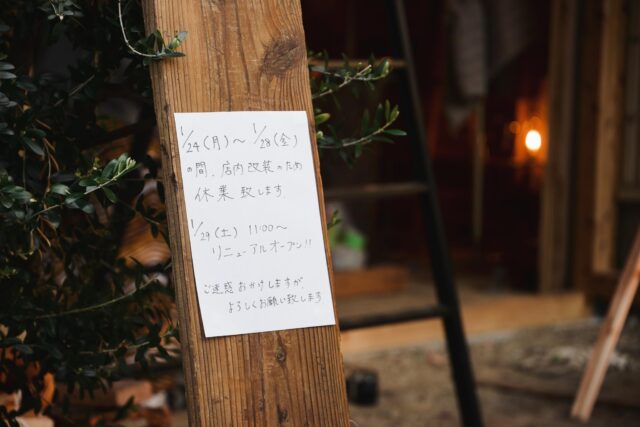 1/24(月)〜 1/28(金)
の間、店内改装のため
休業致します.
1/29(土) 11:00〜
リニューアルオープン!!
ご迷惑おかけしますが、
よろしくお願い致します.